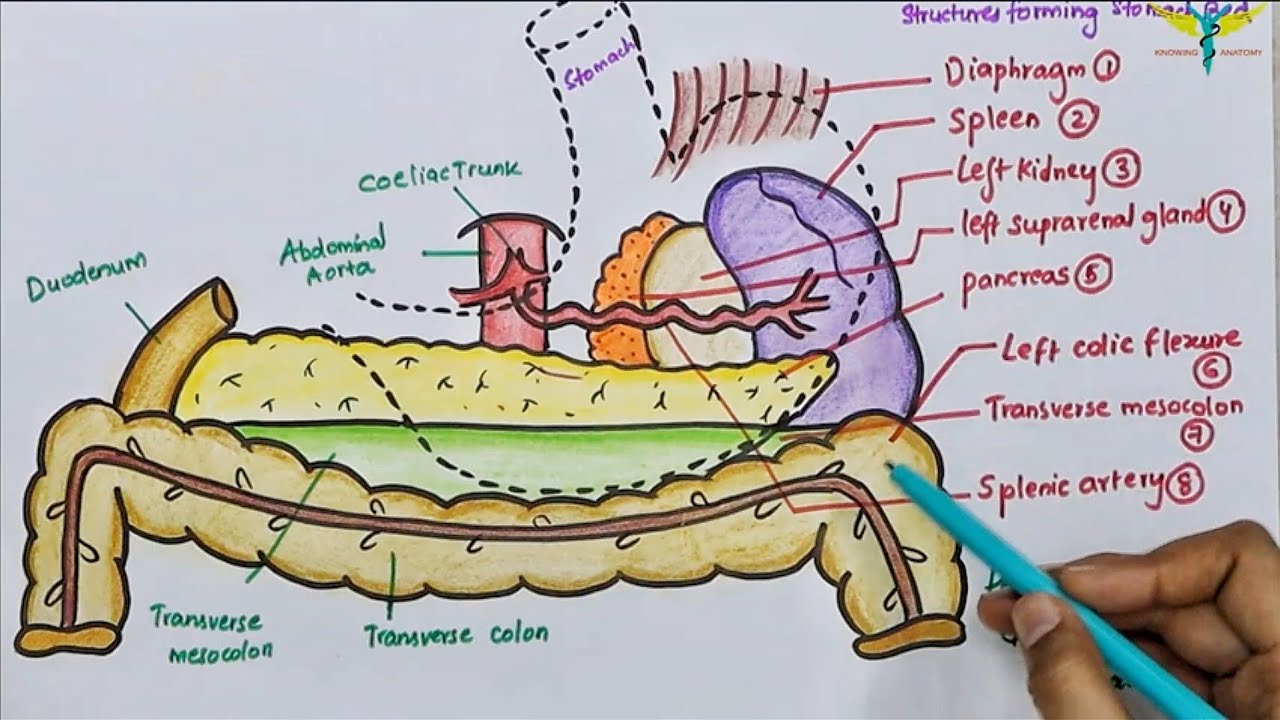 Structures forming Stomach Bed
KNOWING ANATOMY
Stomach
Diaphragm 1
Spleen 2
Left kidney 3
left suprarenal gland 4
pancreas 5
Left colic flexure
6
Transverse mesocolon
7
Splenic artery 8
Coeliac Trunk
Abdominal
Aorta
Duodenum
Transverse
mesocolon
Transverse colon